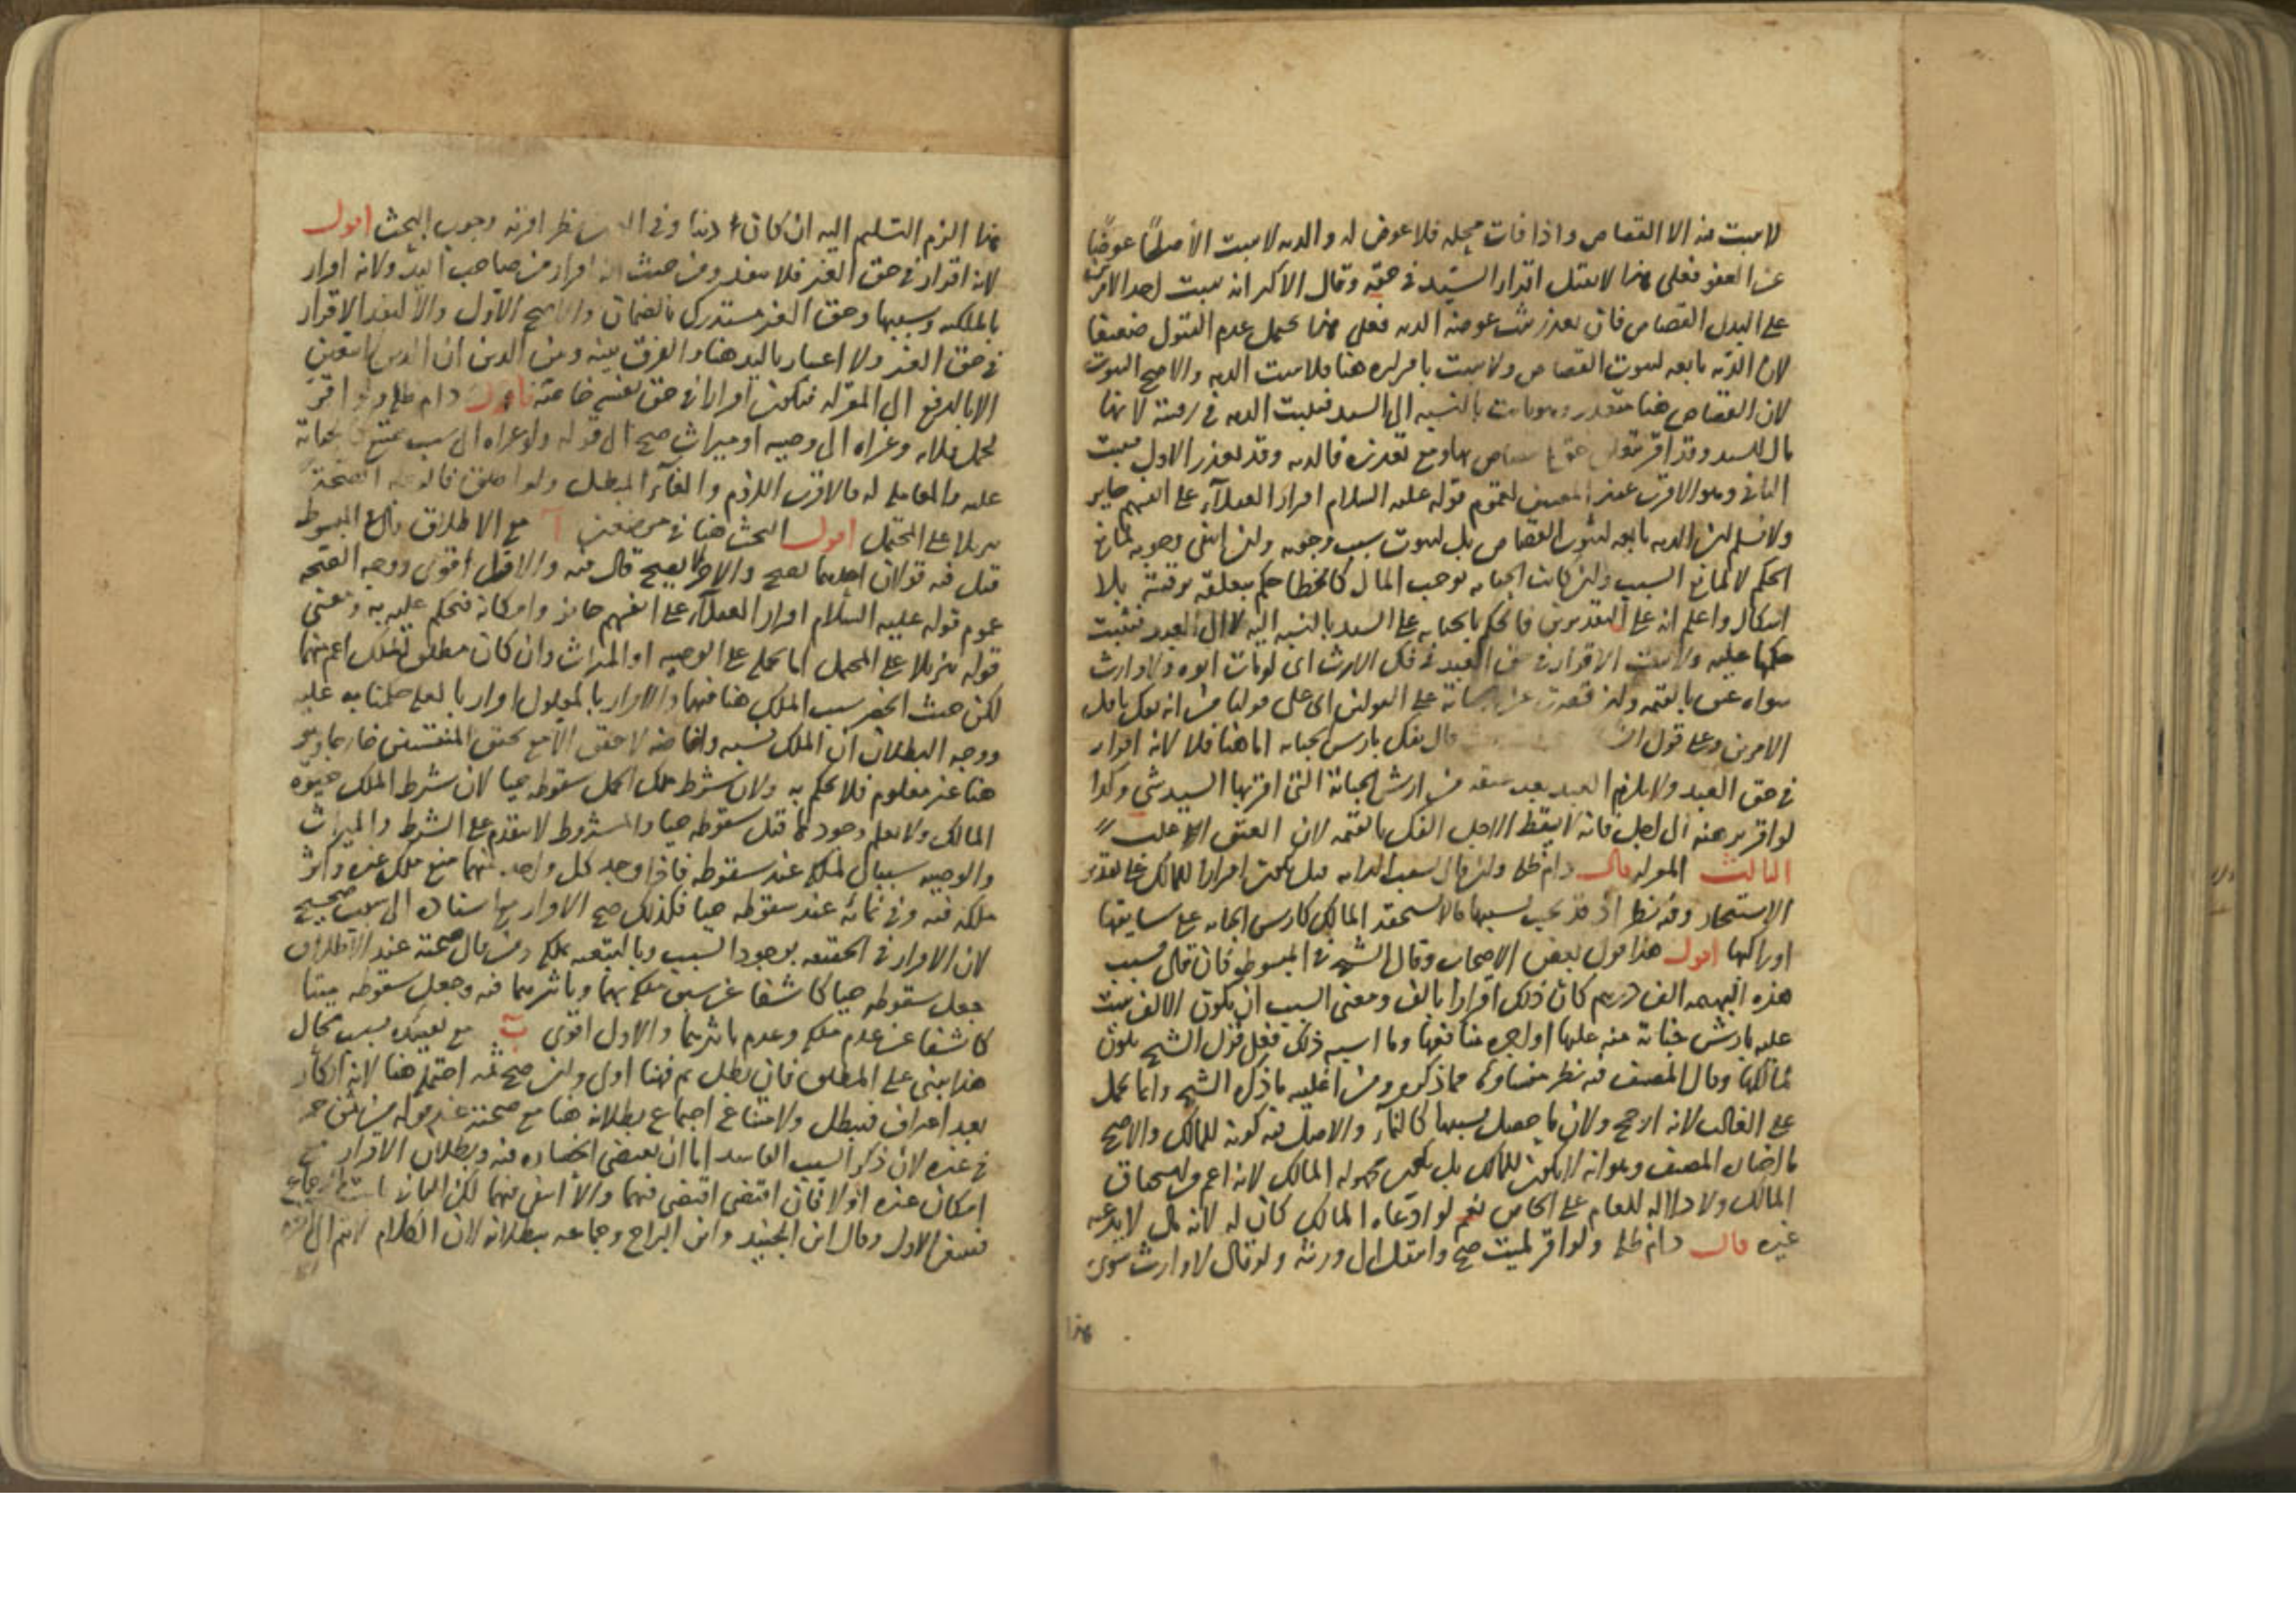 لا يثبت منه الا القصاص واذا فات محله فلا عوض له والديه لا تثبت الا صلحًا عوضًا
عن العفو فعلى هذا لا يقبل اقرار السيد في حقه وقال الاكثر انه يثبت احد الامرين
على البدل القصاص فان تعذر يثبت عوضه الديه فعلى هذا يحتمل عدم القبول ضعيفا
لان الديه تابعه لثبوت القصاص ولا يثبت باقراره هنا فلا يثبت الديه والاصح الثبوت
لان القصاص هنا متعذر بالنسبه الى السيد فيثبت الديه في رقبته لانها
مال للسيد وقد اقر بتعلق حق القصاص بها ومع تعذره فالديه وقد تعذر الاول فيثبت
الثاني وهو الاقرب عند المصنف لعموم قوله عليه السلام اقرار العقلاء على انفسهم جايز
ولا نسلم ان الديه تابعه لثبوت القصاص بل لثبوت سبب وجوبه وان انتفى وجوبه لمانع
الحكم لا لمانع السبب وان كانت الجنايه توجب المال كالخطا حكم بتعلقه برقبته بلا
اشكال واعلم انه على التقديرين فالحكم بالجنايه على السيد بالنسبه اليه لا الى العبد فيثبت
حكمها عليه ولا يثبت الاقرار في حق العبد في فك الارث اى لو مات ابوه ولا وارث
سواه عتق بالقيمه وان قصرت عن الجناية على القولين اى على قولنا من انه يفك باقل
الامرين وعلى قول قال يفك بارش الجنايه اما هنا فلا لانه اقرار
في حق العبد ولا يلزم العبد بعد عتقه من ارش الجناية التي اقر بها السيد شي وكذا
لو اقر برهنه الى اجل فانه لا يقط الاجل الفك بالقيمه لان العتق اغلب
الثالث المقر له قال دام ظله ولو قال بسبب الدابه قيل يكون اقرارا للمالك على تقدير
الاستيجار وفيه نظر اذ قد يجب بسببها مالا يستحقه المالك كارش الجنايه على سايقها
او راكبها اقول هذا قول بعض الاصحاب وقال الشيخ في المبسوط فان قال بسبب
هذه البهيمه الف درهم كان ذلك اقرارا بالف ومعنى السبب ان يكون الالف يثبت
عليه بارش جناية منه عليها او اجره منافعها وما اشبه ذلك فعلى قول الشيخ يكون
لمالكها وقال المصنف فيه نظر منشاوه مما ذكره ومن اغلبيه ما ذكره الشيخ وانما يحمل
على الغالب لانه ارجح ولان ما حصل بسببها كالنماء والاصل فيه كونه للمالك والاصح
ما اختاره المصنف وهو انه لا يكون للمالك بل يكون مجهول المالك لانه اعم من استحقاق
المالك ولا دلاله للعام على الخاص نعم لو ادعاه المالك كان له لانه مال لا يدعيه
غيره قال دام ظله ولو اقر لميت صح وانتقل الى ورثته ولو قال لا وارث سوى
هذا
هذا الزم التسليم اليه ان كان دينا وفي العين نظر اقربه وجوب البحث اقول
لانه اقرار في حق الغير فلا ينفذ ومن حيث انه اقرار من صاحب اليد ولانه اقرار
بالملكيه وسببها وحق الغير مستدرك بالضمان والاصح الاول والا لنفذ الاقرار
في حق الغير ولا اعتبار باليد هنا والفرق بينه وبين الدين ان الدين لا يتعين
الا بالدفع الى المقر له فيكون اقرارا في حق نفسه خاصة قال دام ظله ولو اقر
لحمل فلانه وعزاه الى وصيه او ميراث صح الى قوله ولو عزاه الى سبب ممتنع كالجناية
عليه والمعامله له فالاقرب اللزوم والغاء المبطل ولو اطلق فالوجه الصحة
تنزيلا على المحتمل اقول البحث هنا في موضعين آ مع الاطلاق قال في المبسوط
قيل فيه قولان احدهما يصح والاخر لا يصح قال فيه والاول اقوى ووجه الصحه
عموم قوله عليه السلام اقرار العقلاء على انفسهم جائز وامكانه فيحكم عليه به ومعنى
قوله تنزيلا على المحتمل انما يحمل على الوصيه او الميراث وان كان مطلق الملك اعم منهما
لكن حيث انحصر سبب الملك هنا فيهما والاقرار بالمعلول اقرار بالعله حكمنا به عليه
ووجه البطلان ان الملك نسبه واضافه لا تحقق الا مع تحقق المنتسبين خارجا وهو
هنا غير معلوم فلا يحكم به ولان شرط تملك الحمل سقوطه حيا لان شرط الملك حيوه
المالك ولا يعلم وجودها قبل سقوطه حيا والمشروط لا يتقدم على الشرط والميراث
والوصيه سببان لملكه عند سقوطه فاذا وجد كل واحد منهما منع ملك غيره واثر
ملكه فيه وفي نمائه عند سقوطه حيا فكذلك صح الاقرار مع اسناده الى سبب صحيح
لان الاقرار في الحقيقه بوجود السبب وبالتبعيه بملكه ومن قال بصحته عند الاطلاق
جعل سقوطه حيا كاشفا عن سبق ملكه بهما وتاثيرهما فيه وجعل سقوطه ميتا
كاشفا عن عدم ملكه وعدم تاثيرهما والاول اقوى ب مع تقييده بسبب محال
هذا يبنى على المطلق فان بطل ثم فهنا اولى وان صح ثمه احتمل هنا لانه انكار
بعد اعتراف فيبطل ولامتناع اجتماع بطلانه هنا مع صحته عند قوله من ثمن خمر
في غيره لان ذكر السبب الفاسد اما ان يقتضي انحصاره فيه وبطلان الاقرار مع
امكان غيره او لا فان اقتضى اقتضى فيهما والا انتفى فيهما لكن الثاني ثابت بالاجماع
فينتفي الاول وقال ابن الجنيد وابن البراج وجماعه ببطلانه لان الكلام لا يتم الا